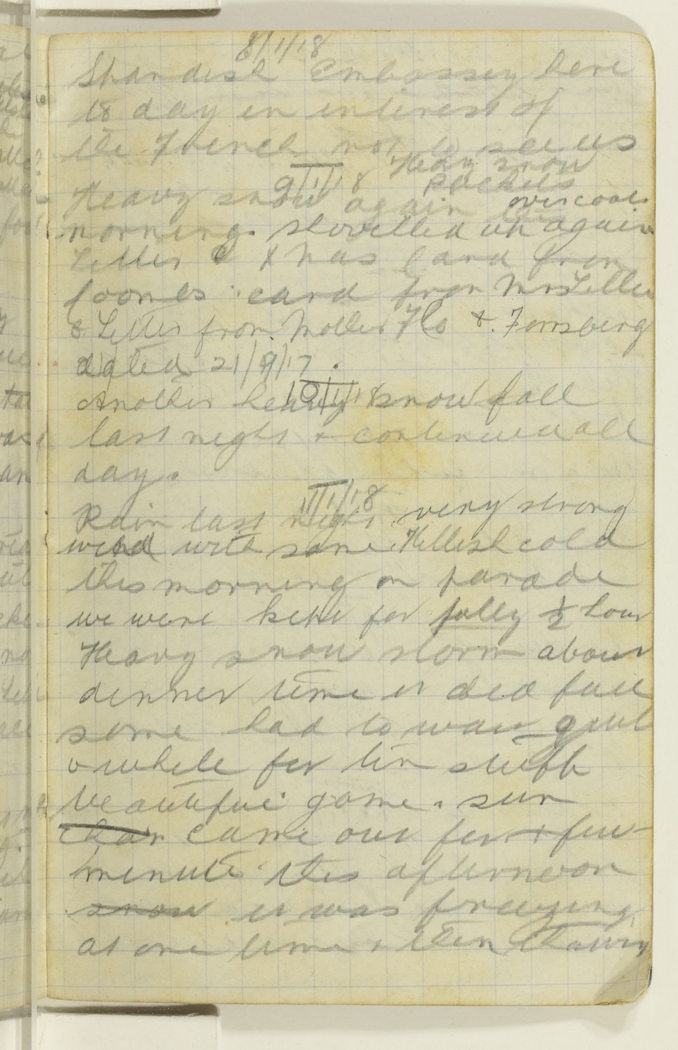 8/1/18
Spandish Embassey here
to day in interest of
the French not to see us
9/1/18 Heavy snow
Heavy snow again packets overcoats
morning. shovelled up again
Letter & Xmas Card from
card from Mrs
& Letter from Mother Flo &
dated 21/9/17.
10/1/18
Another heavy snow fall
last night & continued all
day.
11/1/18
Rain last night. very strong
wind with same. Hellish cold
this morning on parade
we were kept for fully ½ hour
Heavy snow storm about
dinner time it did fall
some had to wait quite
a while for tin stuff
beautiful game. sun
came out for a few
minute this afternoon
snow it was freezing
at one time & then thawing